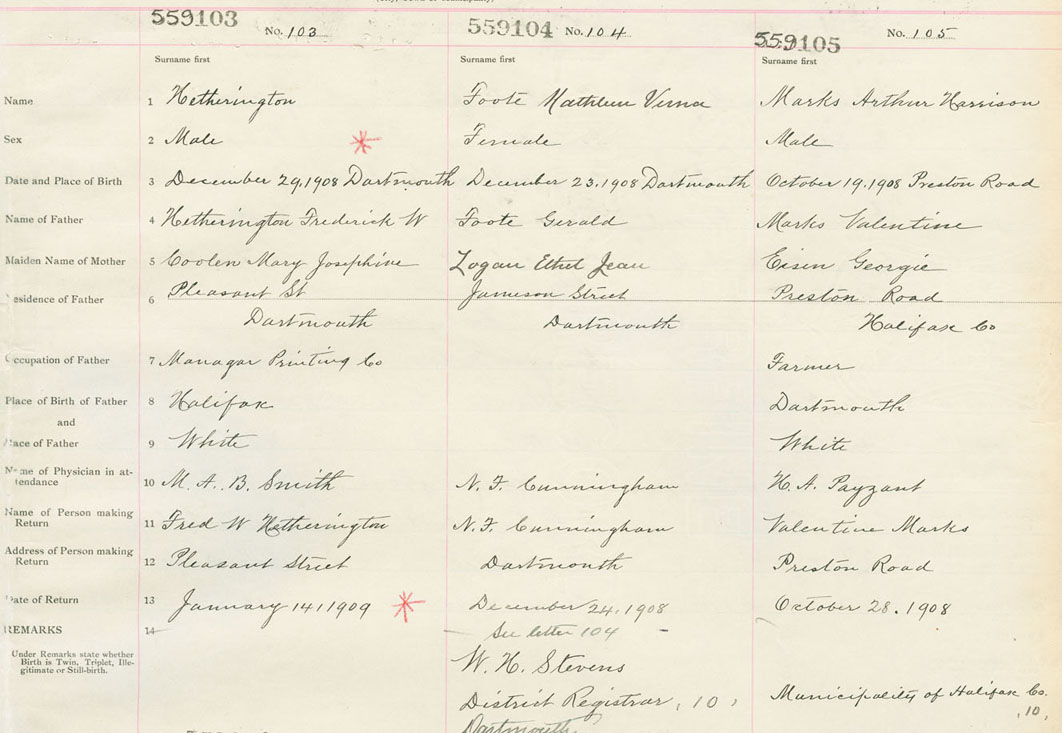 559103 No. 103 559104 No. 104 559105 No. 105
Surname first Surname first Surname first
Name 1 Hetherington Foote Kathleen Verna Marks Arthur Harrison
Sex 2 Male Female Male
Date and Place of Birth 3 December 29, 1908 Dartmouth December 23, 1908 Dartmouth October 19, 1908 Preston Road
Name of Father 4 Hetherington Frederick W Foote Gerald Marks Valentine
Maiden Name of Mother 5 Coolen Mary Josephine Logan Ethel Jean Eisen Georgie
esidence of Father 6 Pleasant St Jameson Street Preston Road
Dartmouth Dartmouth Halifax Co
Occupation of Father 7 Managar Printing Co Farmer
Place of Birth of Father 8 Halifax Dartmouth
and
ace of Father 9 White White
Name of Physician in at-
tendance 10 M. A. B. Smith N. F. Cunningham H. A. Payzant
Name of Person making
Return 11 Fred W Hetherington N. F. Cunningham Valentine Marks
Address of Person making
Return 12 Pleasant Street Dartmouth Preston Road
Date of Return 13 January 14, 1909 December 24, 1908 October 28. 1908
REMARKS 14 See letter 104
Under Remarks state whether
Birth is Twin, Triplet, Ille-
gitimate or Still-birth.
W. H. Stevens
District Registrar, 10, Municipality of Halifax Co.
, 10,
Dartmouth,